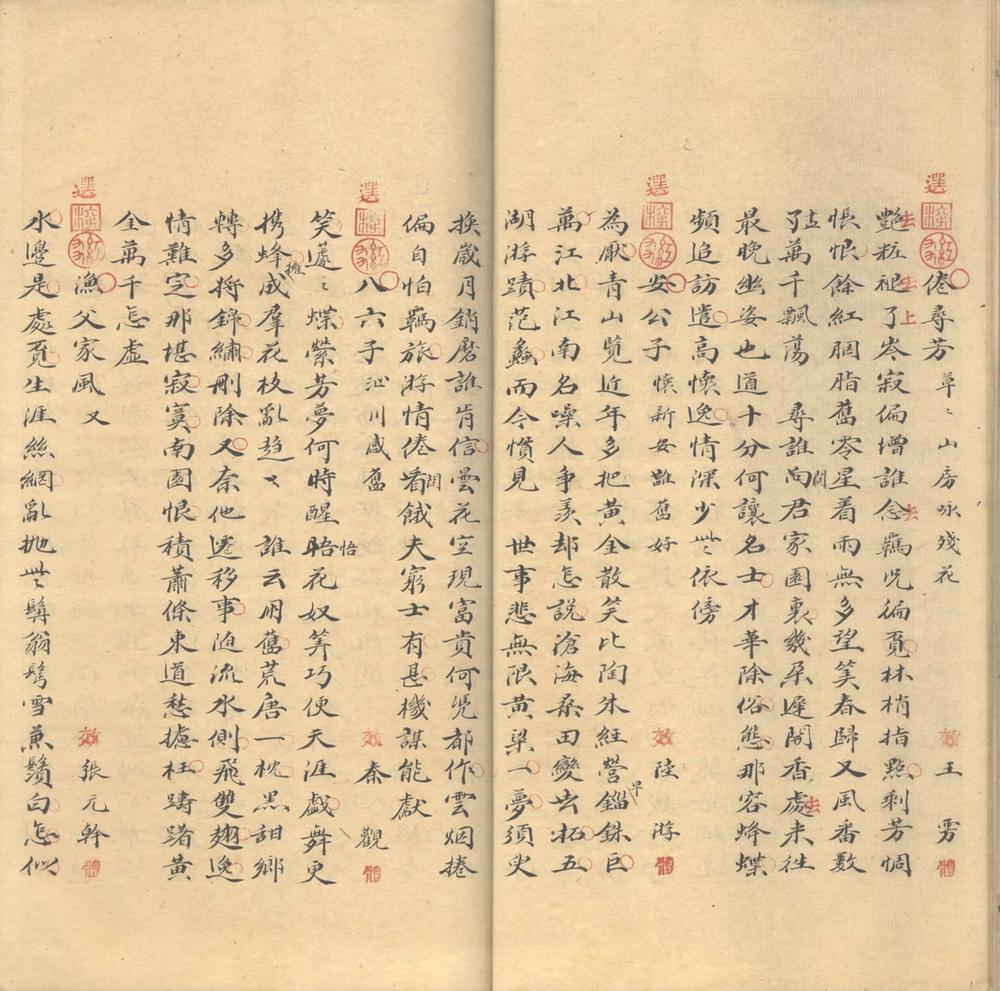 選 倦尋芳 草〻山房咏殘花 效 王雱 體
艷粧褪了岑寂偏增誰念羈况徧覓林梢指點剩芳惆
悵恨餘紅胭脂舊零星着雨無多望笑春歸又風番數
了萬千飄蕩 尋誰向君家園裏幾朶遲開香處来徃
最晚幽姿也道十分何讓名士才華除俗態那容蜂蝶
頻追訪遣高懷逸情深少此依傍
選 安公子 懷新安鮑舊好 效 陸游 體
為厭青山覽近年多把黄金散笑比陶朱経營錙銖巨
萬江北江南名噪人争羡却怎説滄海桑田變出柘五
湖游蹟范蠡而今慣見 世事悲無限黄粱一夢須臾
換歲月銷磨誰肯信曇花空現富貴何凴都作雲烟捲
偏自怕羈旅游情倦看餓夫窮士有甚機謀能獻
選 八六子 沁川感舊 效 秦觀 體
笑蘧〻蝶縈芳夢何時醒晤花奴筭巧便天涯戲舞更
携蜂成羣花枝亂趋〻誰云朋舊荒唐一枕黑甜鄉
轉多將錦繡刪除又奈他遷移事随流水側飛雙翅逸
情難定那堪寂寞南園恨積蕭條東道愁攄枉躊躇黄
全萬千怎虚
選 漁父家風 又 效 張元幹 體
水邊是處覓生涯絲網亂抛此髯翁鬓雪兼鬚白怎似